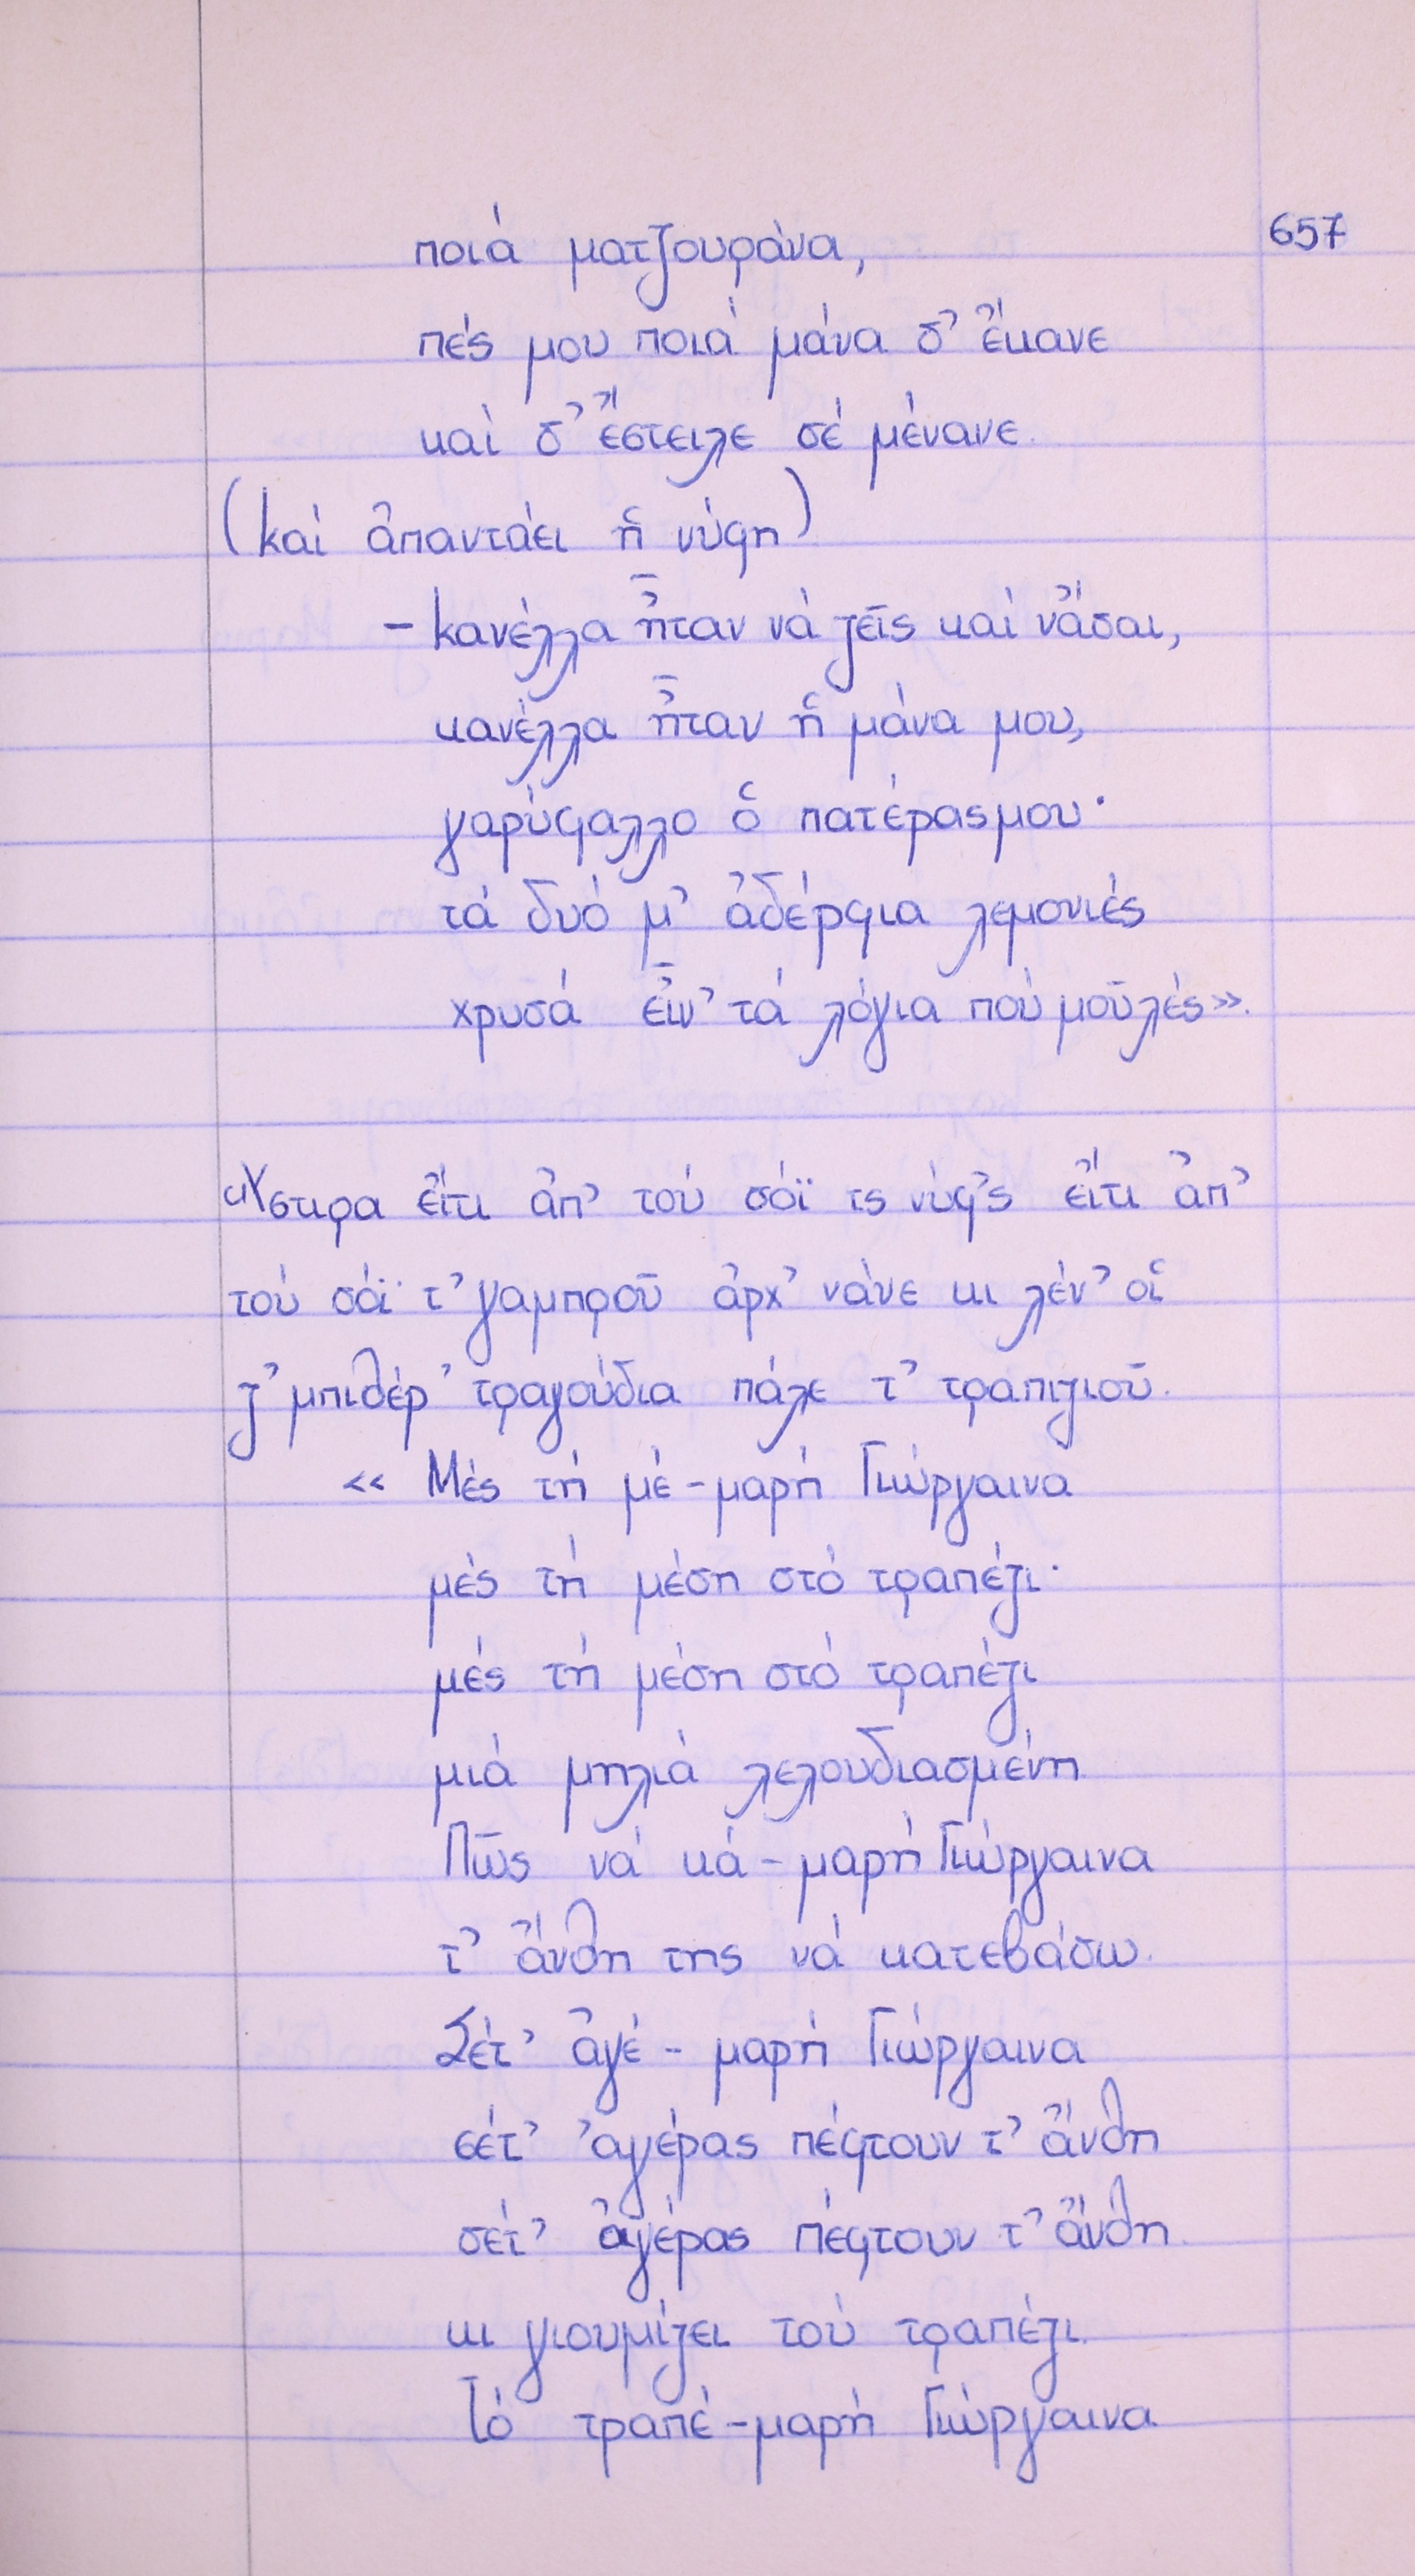 657
ποιά ματζουράνα,
πές μου ποιά μάνα σ' ἔκανε
καί σ' ἔστειλε σέ μένανε.
(καί ἀπαντάει ἡ νύφη)
- κανέλλα ἦταν νά ζεῖς καί νἆσαι,
κανέλλα ἦταν ἡ μάνα μου,
γαρύφαλλο ὁ πατέρας μου·
τά δυό μ' ἀδέρφια λεμονιές
χρυσά εἶν' τά λόγια πού μοῦ λές».
«Ὕστιρα εἴτι ἀπ' τού σόϊ τς νύφ'ς εἴτι ἀπ'
τού σόϊ τ' γαμπροῦ ἀρχ' νάνε κι λέν' οἱ
ζ'μπιθέρ' τραγούδια πάλε τ' τραπιζιοῦ.
« Μές τή μέ-μαρή Γιώργαινα
μές τή μέση στό τραπέζι·
μές τή μέση στό τραπέζι
μιά μηλιά λελουδιασμένη.
Πῶς νά κά-μαρή Γιώργαινα
τ' ἄνθη της νά κατεβάσω.
Σέτ' ἀγέ- μαρή Γιώργαινα
σέτ' 'αγέρας πέφτουν τ' ἄνθη
σέτ' ἀγέρας πέφτουν τ' ἄνθη.
κι γιουμίζει τού τραπέζι.
Τό τραπέ-μαρή Γιώργαινα